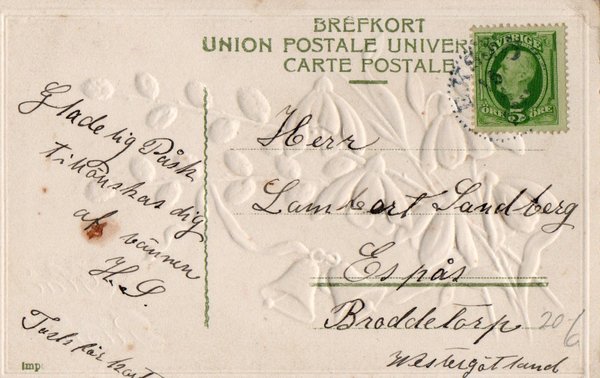 BREFKORT
UNION POSTALE UNIVER
CARTE POSTALE
SVERIGE
5
ÖRE ÖRE
Gladelig Påsk
tillönskas dig
af vännen
H. S.
Herr
Lambert Sandberg
Espås
Broddetorp
Westergötland
20-6
Imp